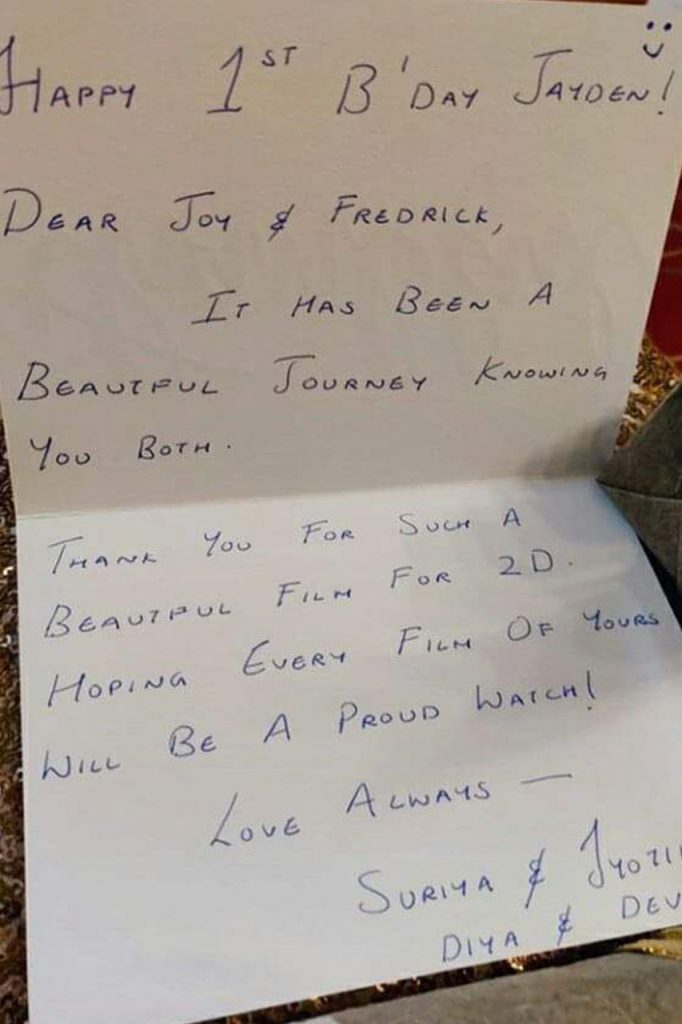 HAPPY 1ST B'DAY JAYDEN!
DEAR JOY & FREDRICK,
IT HAS BEEN A
BEAUTIFUL JOURNEY KNOWING
YOU BOTH.
THANK YOU FOR SUCH A
BEAUTIFUL FILM FOR 2D.
HOPING EVERY FILM OF YOURS
WILL BE A PROUD WATCH!
LOVE ALWAYS —
SURIYA &
DIYA & DEV